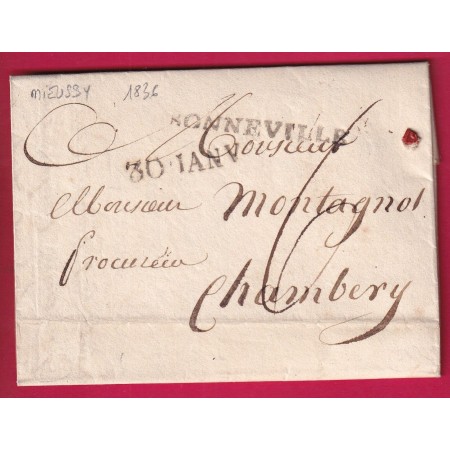 MIEUSSY 1836
BONNEVILLE
30 JANV
Monsieur
Monsieur Montagnol
Procureur
Chambery